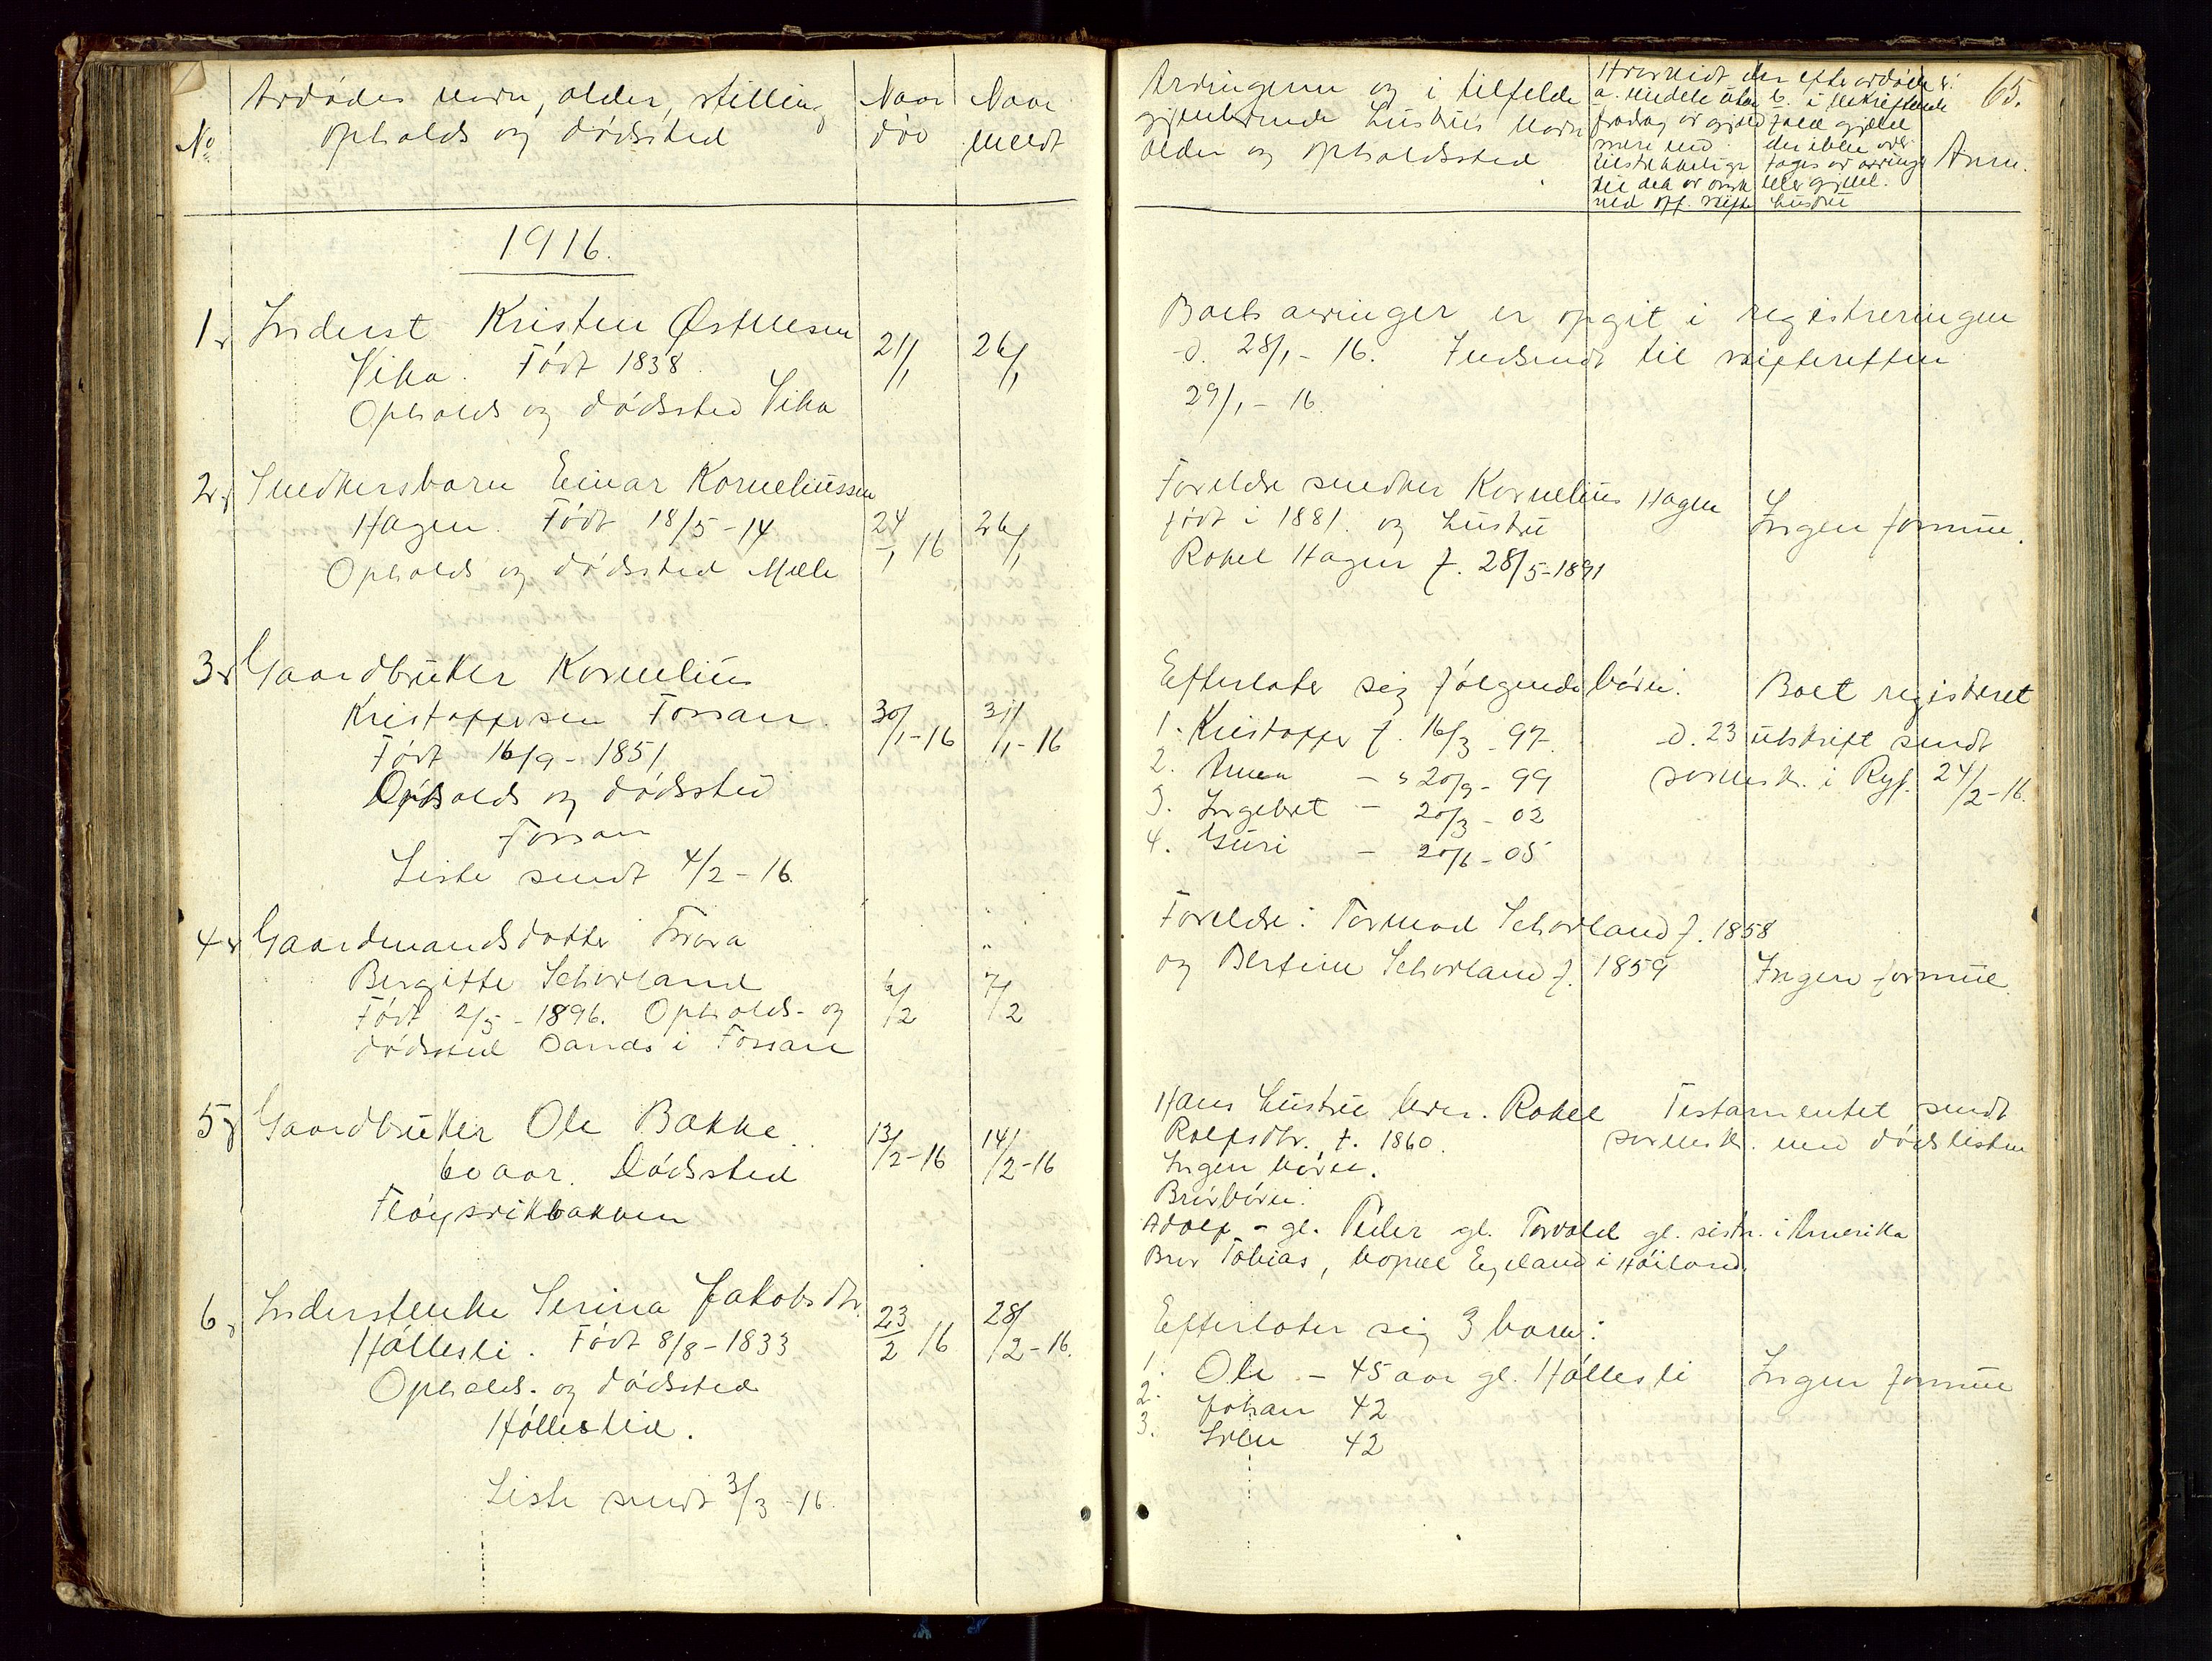 No
Avdødes navn, alder, stilling
opholds og dødssted
Naar
død
Naar
meldt
1916.
1. Inderst Kristen Østensen
Vika. Født 1838.
Opholds og dødssted Vika
21/1
26/1
2. Snedkersbarn Einar Korneliussen
Hagen. Født 18/5-14
Opholds og dødssted Mæle
24/1 16
26/1
3. Gaardbruker Kornelius
Kristoffersen Fossan.
Født 16/9-1851
Opholds og dødssted
Fossan
Liste sendt 4/2-16.
30/1-16
31/1-16
4. Gaardmandsdatter Tora
Bergitte Selvorland
Født 2/5-1896. Opholds- og
dødssted Sands i Fossan
6/2
7/2
5. Gaardbruker Ole Bakke.
60 aar. Dødssted
Fløysvikbakken
13/2-16
14/2-16
6. Inderstenke Serina Jakobsdtr.
Hållesli. Født 8/8-1833
Opholds- og dødssted
Hålleslid.
23/2 16
28/2-16.
Liste sendt 3/3-16.
65.
Arvingene og i tilfelde
gjenlevende hustrus navn
alder og opholdssted
Hvorvidt den efter avdøde er:
a. midele uten
fradrag av gjæld
mere end
tilstrækkelige
til det av
ved off. skifte
b. i bekræftende
fald gjæld
der ikke over-
tages av arvinger
eller gjenl.
hustru
Anm.
Boets arvinger er opgit i registreringen
d. 28/1-16. Indsendt til skifteretten
29/1-16.
Forældre snedker Kornelius Hagen
født i 1881. og hustru
Rakel Hagen f. 28/5-1891
Ingen formue.
Efterlater sig følgende børn.
1. Kristoffer f. 16/3-97.
2. Anna - " 20/9-99
3. Ingebret - 20/3-02
4. Guri - 20/6-05
Boet registreret
d. 23 utskrift sendt
sorensk. i Ryf. 24/2-16.
Forældre: Tormod Selvorland f. 1858
og Bertine Selvorland f. 1859
Ingen formue.
Hans hustru lever. Rakel
Rolfsdtr. f. 1860.
Ingen børn.
Brorbørn:
Adolf - gl. Peder gl. Torvald gl. sistn. i Amerika
Bror Tobias, bopæl Egeland i Høiland.
Testamentet sendt
sorensk. med dødslisten
Efterlater sig 3 barn:
1. Ole - 45 aar gl. Hålleslі
2. Johan 42
3. 42
Ingen formue